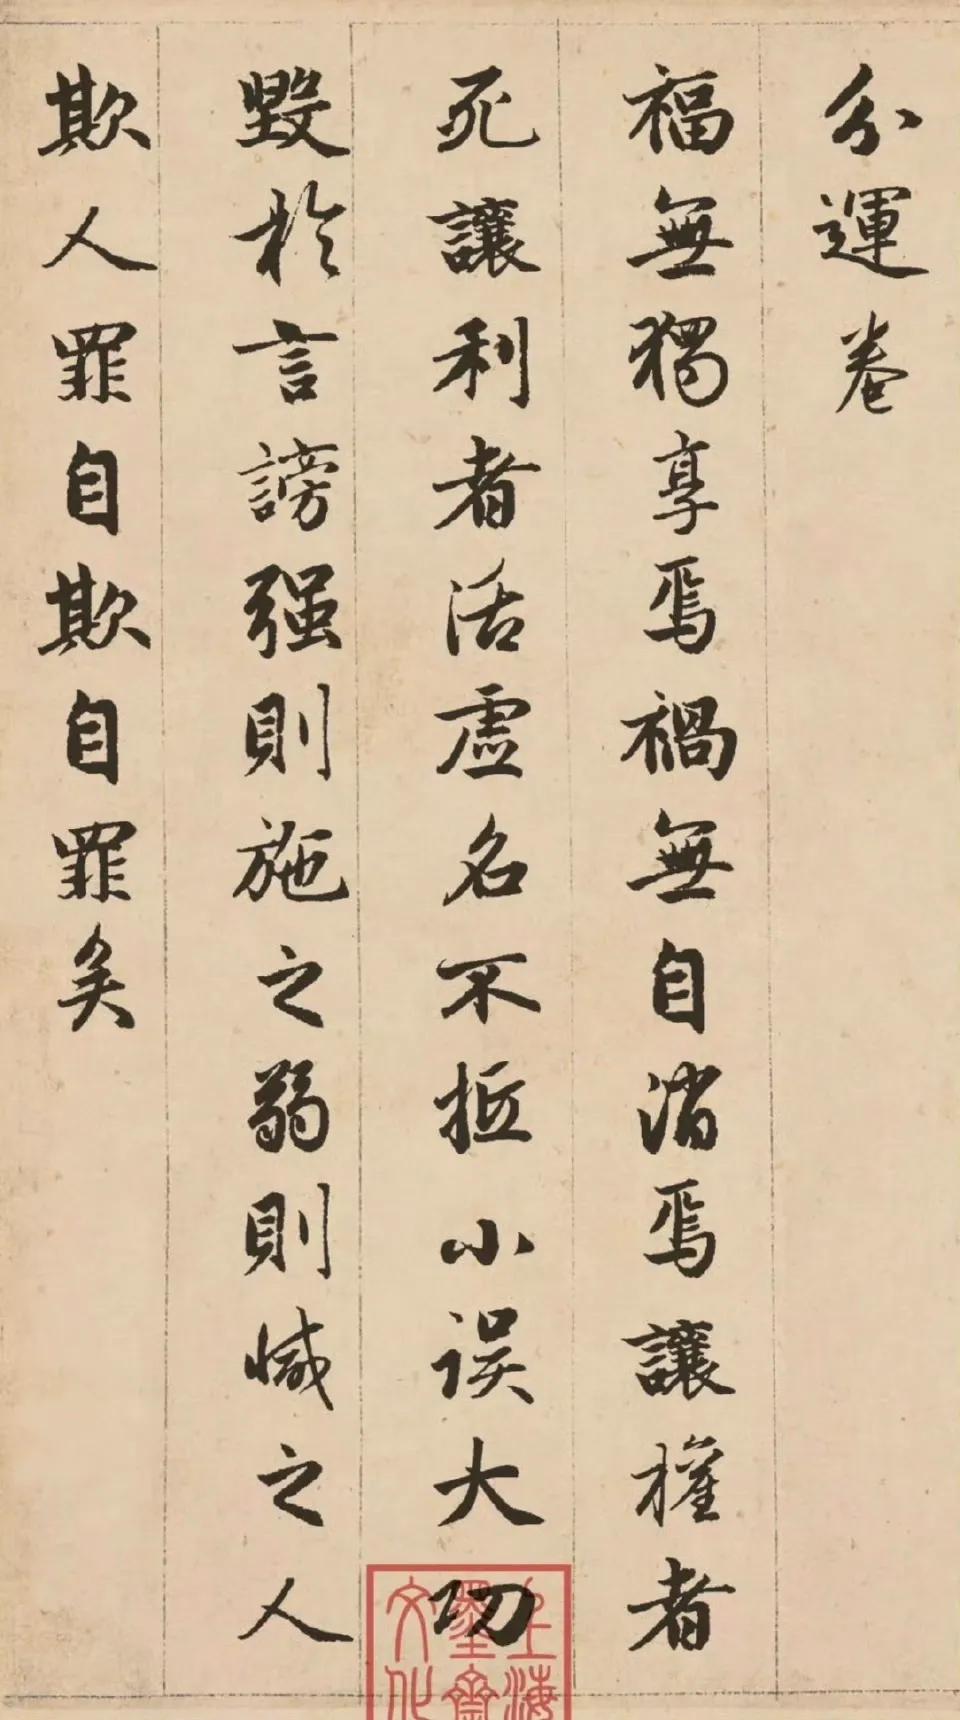 分運卷
福無獨享焉禍無自消焉讓權者
死讓利者活虛名不抵小误大功
毀於言謗强則施之弱則之人
欺人罪自欺自罪矣
上海
墨齋
文化